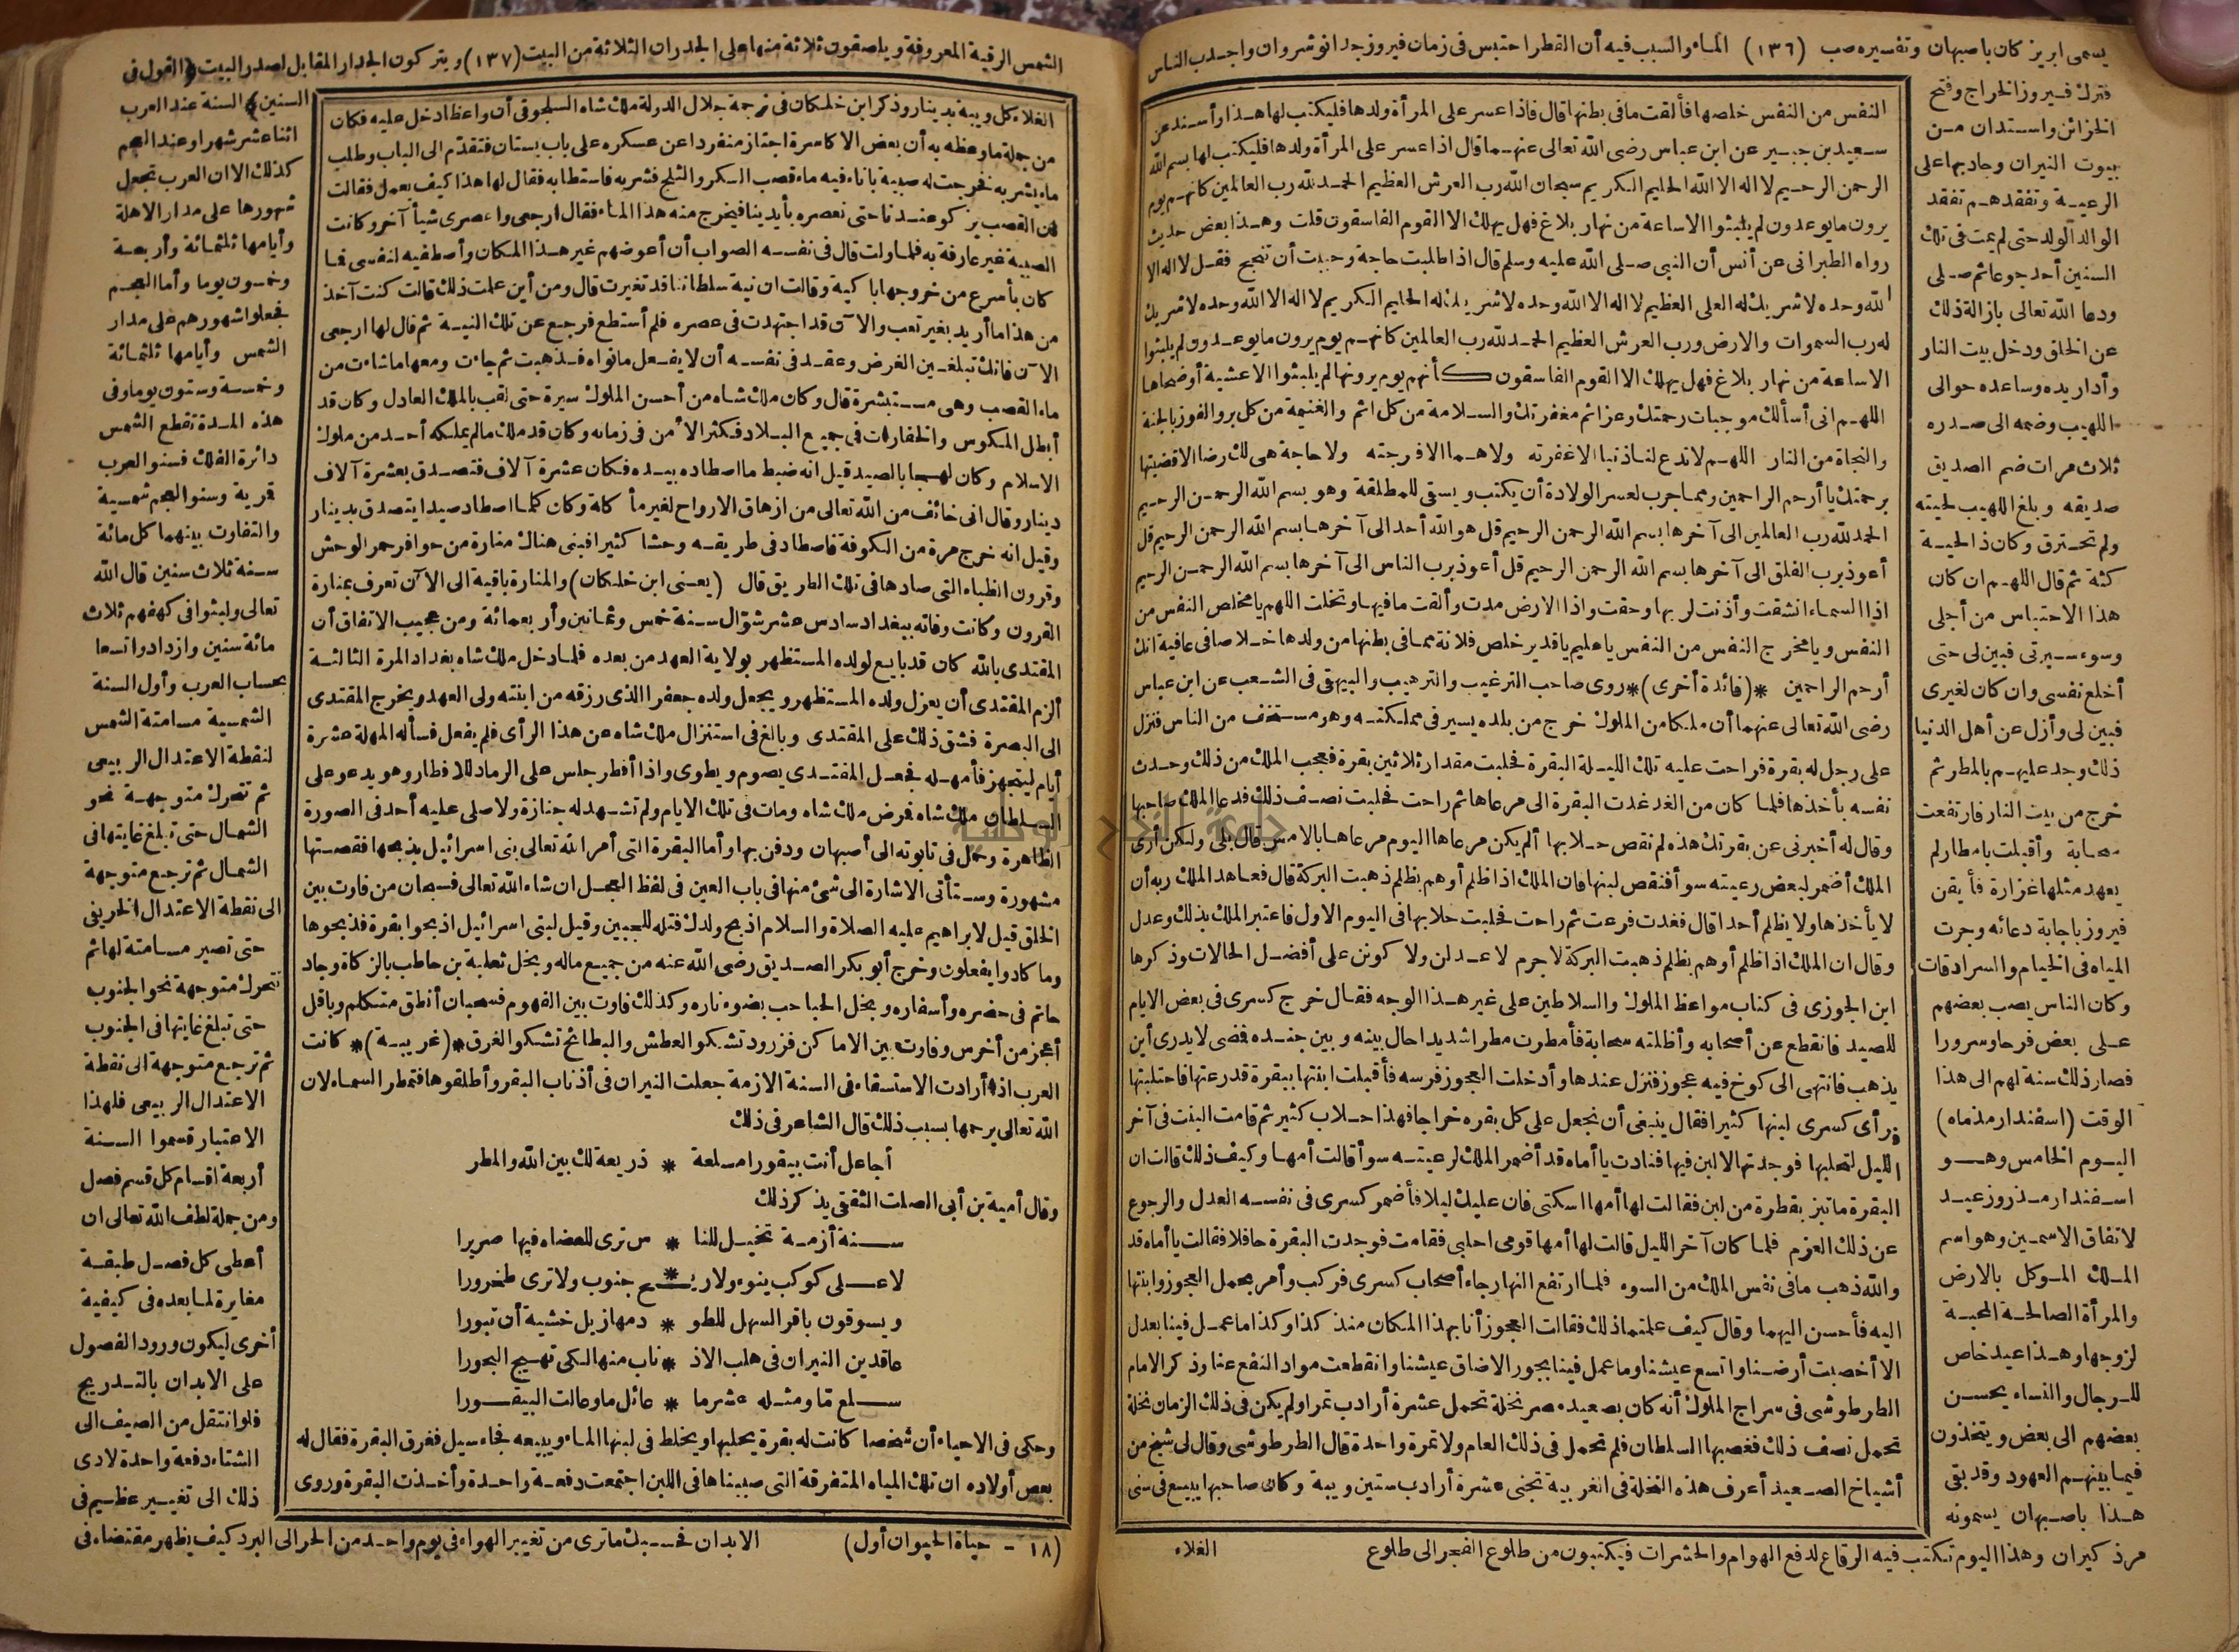 يسمى ابريز كان باصبهان وتفسيره صب (١٣٦) الماء والسبب فيه أن القطر احتبس فى زمان فيروز جد انوشروان وأجدب الناس
فترك فيروز الخراج وفتح
الخزائن واستدان من
بيوت النيران وجاد بها على
الرعية وتفقدهم تفقد
الوالد الولد حتى لم يمت فى تلك
السنين أحد جوعا ثم صلى
ودعا الله تعالى بازالة ذلك
عن الخلق ودخل بيت النار
وأدار يده وساعده حوالى
اللهيب وضمه الى صدره
ثلاث مرات ضم الصديق
صديقه وبلغ اللهيب لحيته
ولم تحترق وكان ذا لحية
كثة ثم قال اللهم ان كان
هذا الاحتباس من أجلى
وسوء سيرتى فبين لى حتى
أخلع نفسى وان كان لغيرى
فبين لى وأزل عن أهل الدنيا
ذلك وجد عليهم بالمطر ثم
خرج من بيت النار فارتفعت
سحابة وأقبلت بامطار لم
يعهد مثلها غزارة فأيقن
فيروز باجابة دعائه وجرت
المياه فى الخيام والسرادقات
وكان الناس يصب بعضهم
على بعض فرحا وسرورا
فصار ذلك سنة لهم الى هذا
الوقت (اسفندارمذماه)
اليوم الخامس وهو
اسفندارمذروز عيد
لاتفاق الاسمين وهو اسم
الملك الموكل بالارض
والمرأة الصالحة المحبة
لزوجها وهذا عيد خاص
للرجال والنساء يحسن
بعضهم الى بعض ويتخذون
فيما بينهم العهود وقد بقى
هذا باصبهان يسمونه
مرذ كيران وهذا اليوم تكتب فيه الرقاع لدفع الهوام والحشرات فيكتبون من طلوع الفجر الى طلوع
النفس من النفس خلصها فألقت ما فى بطنها قال فاذا عسر على المرأة ولدها فليكتب لها هذا وأسند عن
سعيد بن جبير عن ابن عباس رضى الله تعالى عنهما قال اذا عسر على المرأة ولدها فليكتب لها بسم الله
الرحمن الرحيم لا اله الا الله الحليم الكريم سبحان الله رب العرش العظيم الحمد لله رب العالمين كأنهم يوم
يرون ما يوعدون لم يلبثوا الا ساعة من نهار بلاغ فهل يهلك الا القوم الفاسقون قلت وهذا بعض حديث
رواه الطبرانى عن أنس أن النبى صلى الله عليه وسلم قال اذا طلبت حاجة وحببت أن تنجح فقل لا اله الا
الله وحده لا شريك له العلى العظيم لا اله الا الله وحده لا شريك له الحليم الكريم لا اله الا الله وحده لا شريك
له رب السموات والارض ورب العرش العظيم الحمد لله رب العالمين كأنهم يوم يرون ما يوعدون لم يلبثوا
الا ساعة من نهار بلاغ فهل يهلك الا القوم الفاسقون كأنهم يوم يرونها لم يلبثوا الا عشية أو ضحاها
اللهم انى أسألك موجبات رحمتك وعزائم مغفرتك والسلامة من كل اثم والغنيمة من كل بر والفوز بالجنة
والنجاة من النار اللهم لا تدع لنا ذنبا الا غفرته ولا هما الا فرجته ولا حاجة هى لك رضا الا قضيتها
برحمتك يا أرحم الراحمين ومما جرب لعسر الولادة أن يكتب ويسقى للمطلقة وهو بسم الله الرحمن الرحيم
الحمد لله رب العالمين الى آخرها بسم الله الرحمن الرحيم قل هو الله أحد الى آخرها بسم الله الرحمن الرحيم قل
أعوذ برب الفلق الى آخرها بسم الله الرحمن الرحيم قل أعوذ برب الناس الى آخرها بسم الله الرحمن الرحيم
اذا السماء انشقت وأذنت لربها وحقت واذا الارض مدت وألقت ما فيها وتخلت اللهم يا مخلص النفس من
النفس ويا مخرج النفس من النفس يا عليم يا قدير خلص فلانة مما فى بطنها من ولدها خلاصا فى عافية انك
أرحم الراحمين *(فائدة أخرى)* روى صاحب الترغيب والترهيب والبيهقى فى الشعب عن ابن عباس
رضى الله تعالى عنهما أن ملكا من الملوك خرج من بلده يسير فى مملكته وهو مستخف من الناس فنزل
على رجل له بقرة فراحت عليه تلك الليلة البقرة فحلبت مقدار ثلاثين بقرة فعجب الملك من ذلك وحدث
نفسه بأخذها فلما كان من الغد غدت البقرة الى مرعاها ثم راحت فحلبت نصف ذلك فدعا الملك صاحبها
وقال له أخبرنى عن بقرتك هذه لم نقص حلابها ألم يكن مرعاها اليوم مرعاها بالامس قال بلى ولكن أرى
الملك أضمر لبعض رعيته سوأ فنقص لبنها فان الملك اذا ظلم أو هم بظلم ذهبت البركة قال فعاهد الملك ربه أن
لا يأخذها ولا يظلم أحدا قال فغدت فرعت ثم راحت فحلبت حلابها فى اليوم الاول فاعتبر الملك بذلك وعدل
وقال ان الملك اذا ظلم أو هم بظلم ذهبت البركة لا جرم لاعدلن ولا كونن على أفضل الحالات وذكرها
ابن الجوزى فى كتاب مواعظ الملوك والسلاطين على غير هذا الوجه فقال خرج كسرى فى بعض الايام
للصيد فانقطع عن أصحابه وأظلته سحابة فأمطرت مطرا شديدا حال بينه وبين جنده فمضى لا يدرى أين
يذهب فانتهى الى كوخ فيه عجوز فنزل عندها وأدخلت العجوز فرسه فأقبلت ابنتها ببقرة قد رعتها فاحتلبتها
فرأى كسرى لبنها كثيرا فقال ينبغى أن نجعل على كل بقرة خراجا فهذا حلاب كثير ثم قامت البنت فى آخر
الليل لتحلبها فوجدتها لا لبن فيها فنادت يا أماه قد أضمر الملك لرعيته سوأ قالت أمها وكيف ذلك قالت ان
البقرة ما تبز بقطرة من لبن فقالت لها أمها اسكتى فان عليك ليلا فأضمر كسرى فى نفسه العدل والرجوع
عن ذلك العزم فلما كان آخر الليل قالت لها أمها قومى احلبى فقامت فوجدت البقرة حافلا فقالت يا أماه قد
والله ذهب ما فى نفس الملك من السوء فلما ارتفع النهار جاء أصحاب كسرى فركب وأمر بحمل العجوز وابنتها
اليه فأحسن اليهما وقال كيف علمتما ذلك فقالت العجوز أنا بهذا المكان منذ كذا وكذا ما عمل فينا بعدل
الا أخصبت أرضنا واتسع عيشنا وما عمل فينا بجور الا ضاق عيشنا وانقطعت مواد النفع عنا وذكر الامام
الطرطوشى فى سراج الملوك أنه كان بصعيد مصر نخلة تحمل عشرة أرادب تمرا ولم يكن فى ذلك الزمان نخلة
تحمل نصف ذلك فغصبها السلطان فلم تحمل فى ذلك العام ولا تمرة واحدة قال الطرطوشى وقال لى شيخ من
أشياخ الصعيد أعرف هذه النخلة فى الغربية تجنى عشرة أرادب ستين ويبة وكان صاحبها يبيع فى سنى
الغلاء
الشمس الرقية المعروفة ويلصقون ثلاثة منها على الجدران الثلاثة من البيت (١٣٧) ويتركون الجدار المقابل لصدر البيت (القول فى
الغلاء كل ويبة بدينار وذكر ابن خلكان فى ترجمة جلال الدولة ملك شاه السلجوقى أن واعظا دخل عليه فكان
من جملة ما وعظه به أن بعض الاكاسرة اجتاز منفردا عن عسكره على باب بستان فتقدم الى الباب وطلب
ماء يشربه فخرجت له صبية باناء فيه ماء قصب السكر والثلج فشربه فاستطابه فقال لها هذا كيف يعمل فقالت
من القصب يزكو عندنا حتى نعصره بأيدينا فيخرج منه هذا الماء فقال ارجعى واعصرى شيأ آخر وكانت
الصبية غير عارفة به فلما ولت قال فى نفسه الصواب أن أعوضهم غير هذا المكان وأصطفيه لنفسى فما
كان بأسرع من خروجها باكية وقالت ان نية سلطاننا قد تغيرت قال ومن أين علمت ذلك قالت كنت آخذ
من هذا ما أريد بغير تعب والآن قد اجتهدت فى عصره فلم أستطع فرجع عن تلك النية ثم قال لها ارجعى
الآن فانك تبلغين الغرض وعقد فى نفسه أن لا يفعل ما نواه فذهبت ثم جاءت ومعها ما شاءت من
ماء القصب وهى مستبشرة قال وكان ملك شاه من أحسن الملوك سيرة حتى لقب بالملك العادل وكان قد
أبطل المكوس والخفارات فى جميع البلاد فكثر الأمن فى زمانه وكان قد ملك ما لم يملكه أحد من ملوك
الاسلام وكان لهجا بالصيد قيل انه ضبط ما اصطاده بيده فكان عشرة آلاف فتصدق بعشرة آلاف
دينار وقال انى خائف من الله تعالى من ازهاق الارواح لغير مأكلة وكان كلما اصطاد صيدا يتصدق بدينار
وقيل انه خرج مرة من الكوفة فاصطاد فى طريقه وحشا كثيرا فبنى هناك منارة من حوافر حمر الوحش
وقرون الظباء التى صادها فى تلك الطريق قال (يعنى ابن خلكان) والمنارة باقية الى الآن تعرف بمنارة
القرون وكانت وفاته ببغداد سادس عشر شوال سنة خمس وثمانين وأربعمائة ومن عجيب الاتفاق أن
المقتدى بالله كان قد بايع لولده المستظهر بولاية العهد من بعده فلما دخل ملك شاه بغداد المرة الثالثة
ألزم المقتدى أن يعزل ولده المستظهر ويجعل ولده جعفرا الذى رزقه من ابنته ولى العهد ويخرج المقتدى
الى البصرة فشق ذلك على المقتدى وبالغ فى استنزال ملك شاه عن هذا الرأى فلم يفعل فسأله المهلة عشرة
أيام ليتجهز فأمهله فجعل المقتدى يصوم ويطوى واذا أفطر جلس على الرماد للافطار وهو يدعو على
السلطان ملك شاه فمرض ملك شاه ومات فى تلك الايام ولم تشهد له جنازة ولا صلى عليه أحد فى الصورة
الظاهرة وحمل فى تابوته الى أصبهان ودفن بها وأما البقرة التى أمر الله تعالى بنى اسرائيل بذبحها فقصتها
مشهورة وستأتى الاشارة الى شئ منها فى باب العين فى لفظ العجل ان شاء الله تعالى فسبحان من فاوت بين
الخلق قيل لابراهيم عليه الصلاة والسلام اذبح ولدك فتله للجبين وقيل لبنى اسرائيل اذبحوا بقرة فذبحوها
وما كادوا يفعلون وخرج أبو بكر الصديق رضى الله عنه من جميع ماله وبخل ثعلبة بن حاطب بالزكاة وجاد
حاتم فى حضره وأسفاره وبخل الحباحب بضوء ناره وكذلك فاوت بين الفهوم فسحبان أنطق متكلم وباقل
أعجز من أخرس وفاوت بين الاماكن فزرود تشكو العطش والبطائح تشكو الغرق *(غريبة)* كانت
العرب اذا أرادت الاستسقاء فى السنة الازمة جعلت النيران فى أذناب البقر وأطلقوها فتمطر السماء لان
الله تعالى يرحمها بسبب ذلك قال الشاعر فى ذلك
أجاعل أنت بيقورا مسلعة * ذريعة لك بين الله والمطر
وقال أمية بن أبى الصلت الثقفى يذكر ذلك
سنة أزمة تخيل للنا * س ترى للعضاه فيها صريرا
لا على كوكب ينوء ولا ريح * جنوب ولا ترى طخرورا
ويسوقون باقر السهل للطو * د مهازيل خشية أن تبورا
عاقدين النيران فى هلب الاذ * ناب منها لكى تهيج البحورا
سلع ما ومثله عشر ما * عائل ما وعالت البيقورا
وحكى فى الاحياء أن شخصا كانت له بقرة يحلبها ويخلط فى لبنها الماء ويبيعه فجاء سيل فغرق البقرة فقال له
بعض أولاده ان تلك المياه المتفرقة التى صببناها فى اللبن اجتمعت دفعة واحدة وأخذت البقرة وروى
السنين) السنة عند العرب
اثنا عشر شهرا وعند العجم
كذلك الا ان العرب تجعل
شهورها على مدار الاهلة
وأيامها ثلثمائة وأربعة
وخمسون يوما وأما العجم
فجعلوا شهورهم على مدار
الشمس وأيامها ثلثمائة
وخمسة وستون يوما وفى
هذه المدة تقطع الشمس
دائرة الفلك فسنو العرب
قمرية وسنو العجم شمسية
والتفاوت بينهما كل مائة
سنة ثلاث سنين قال الله
تعالى ولبثوا فى كهفهم ثلاث
مائة سنين وازدادوا تسعا
بحساب العرب وأول السنة
الشمسية مسامتة الشمس
لنقطة الاعتدال الربيعى
ثم تتحرك متوجهة نحو
الشمال حتى تبلغ غايتها فى
الشمال ثم ترجع متوجهة
الى نقطة الاعتدال الخريفى
حتى تصير مسامتة لها ثم
تتحرك متوجهة نحو الجنوب
حتى تبلغ غايتها فى الجنوب
ثم ترجع متوجهة الى نقطة
الاعتدال الربيعى فلهذا
الاعتبار قسموا السنة
أربعة اقسام كل قسم فصل
ومن جملة لطف الله تعالى ان
أعطى كل فصل طبقة
مغايرة لما بعده فى كيفية
أخرى ليكون ورود الفصول
على الابدان بالتدريج
فلو انتقل من الصيف الى
الشتاء دفعة واحدة لادى
ذلك الى تغيير عظيم فى
الابدان فحسبك ما ترى من تغيير الهواء فى يوم واحد من الحر الى البرد كيف يظهر مقتضاه فى
(١٨ - حياة الحيوان أول)
جامعة النجاح الوطنية